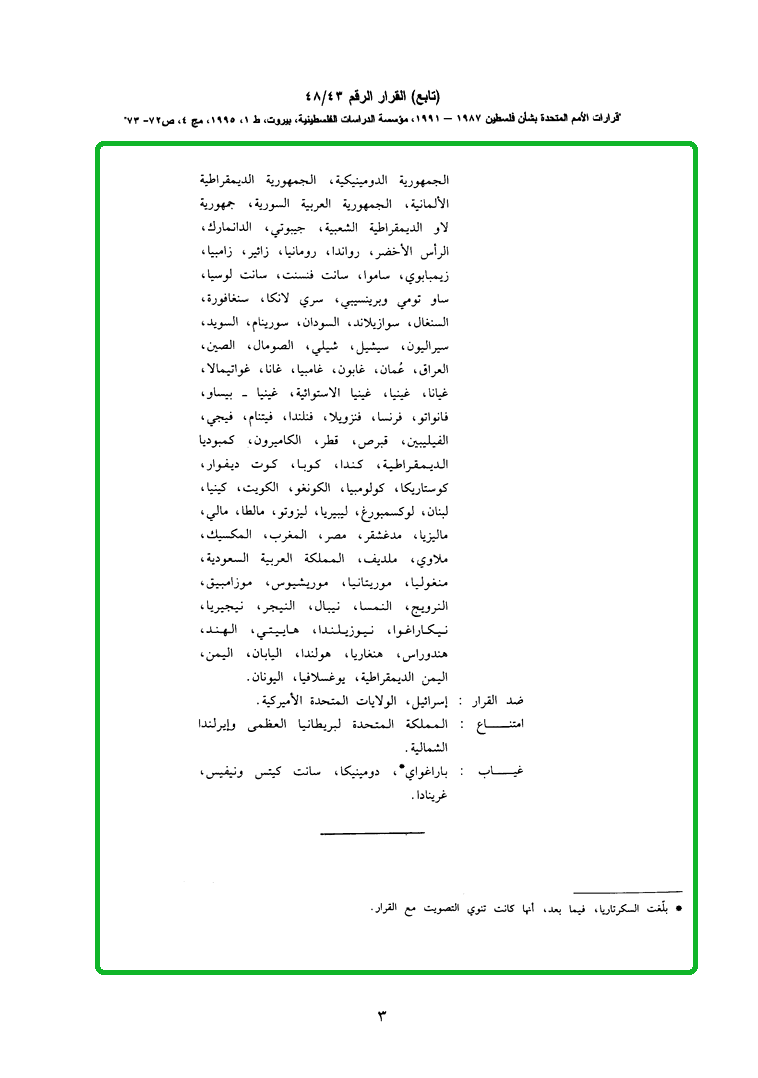 (تابع) القرار الرقم ٤٨/٤٣
"قرارات الأمم المتحدة بشأن فلسطين ١٩٨٧ – ١٩٩١، مؤسسة الدراسات الفلسطينية، بيروت، ط ١، ١٩٩٥، مج ٤، ص٧٢- ٧٣"
الجمهورية الدومينيكية، الجمهورية الديمقراطية
الألمانية، الجمهورية العربية السورية، جمهورية
لاو الديمقراطية الشعبية، جيبوتي، الدانمارك،
الرأس الأخضر، رواندا، رومانيا، زائير، زامبيا،
زيمبابوي، ساموا، سانت فنسنت، سانت لوسيا،
ساو تومي وبرينسيبي، سري لانكا، سنغافورة،
السنغال، سوازيلاند، السودان، سورينام، السويد،
سيراليون، سيشيل، شيلي، الصومال، الصين،
العراق، عُمان، غابون، غامبيا، غانا، غواتيمالا،
غيانا، غينيا، غينيا الاستوائية، غينيا ـ بيساو،
فانواتو، فرنسا، فنزويلا، فنلندا، فيتنام، فيجي،
الفيليبين، قبرص، قطر، الكاميرون، كمبوديا
الديمقراطية، كندا، كوبا، كوت ديفوار،
كوستاريكا، كولومبيا، الكونغو، الكويت، كينيا،
لبنان، لوكسمبورغ، ليبيريا، ليزوتو، مالطا، مالي،
ماليزيا، مدغشقر، مصر، المغرب، المكسيك،
ملاوي، ملديف، المملكة العربية السعودية،
منغوليا، موريتانيا، موريشيوس، موزامبيق،
النرويج، النمسا، نيبال، النيجر، نيجيريا،
نيكاراغوا، نيوزيلندا، هاييتي، الهند،
هندوراس، هنغاريا، هولندا، اليابان، اليمن،
اليمن الديمقراطية، يوغسلافيا، اليونان.
ضد القرار : إسرائيل، الولايات المتحدة الأميركية.
امتنـــــاع : المملكة المتحدة لبريطانيا العظمى وإيرلندا
الشمالية.
غيـــــاب : باراغواي*، دومينيكا، سانت كيتس ونيفيس،
غرينادا.
● بلّغت السكرتاريا، فيما بعد، أنها كانت تنوي التصويت مع القرار.
٣